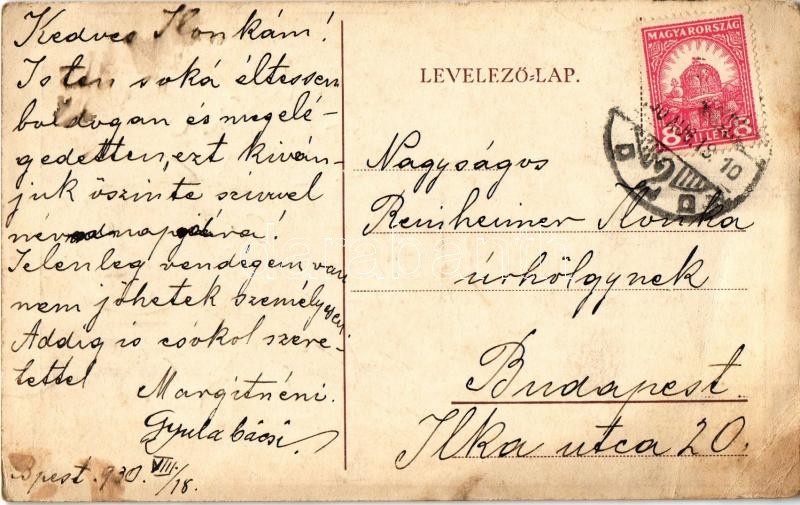 Kedves Ilonkám!
Isten soká éltessen
boldogan és megelé-
gedetten, ezt kiván-
juk őszinte szivvel
névnapodra!
Jelenleg vendégem van
nem jöhetek személyesen
Addig is csókol szere-
tettel
Margitnéni.
Gyula bácsi.
Bpest. 930. VIII/18.
LEVELEZŐ-LAP.
MAGYARORSZÁG
8 FILLÉR 8
Nagyságos
Reinheimer Ilonka
úrhölgynek
Budapest
Ilka utca 20.
darabanth